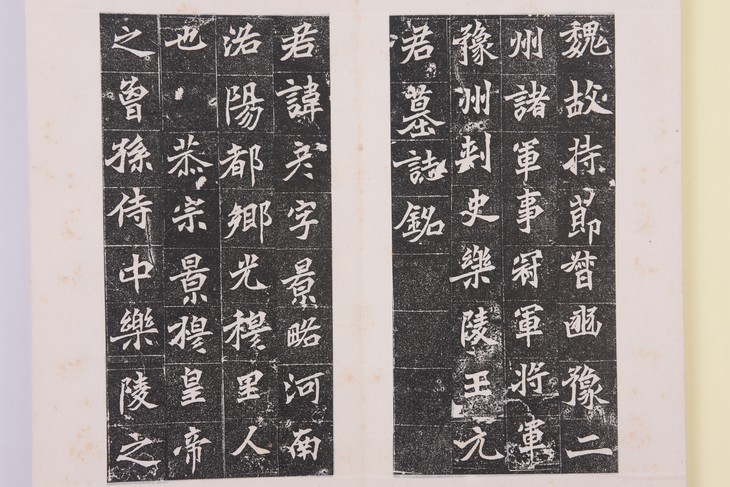 魏故持節督豳豫二
州諸軍事冠軍將軍
豫州刾史樂陵王元
君墓誌銘
君諱彦字景略河南
洛陽都鄉光穆里人
也恭宗景穆皇帝
之曾孫侍中樂陵之